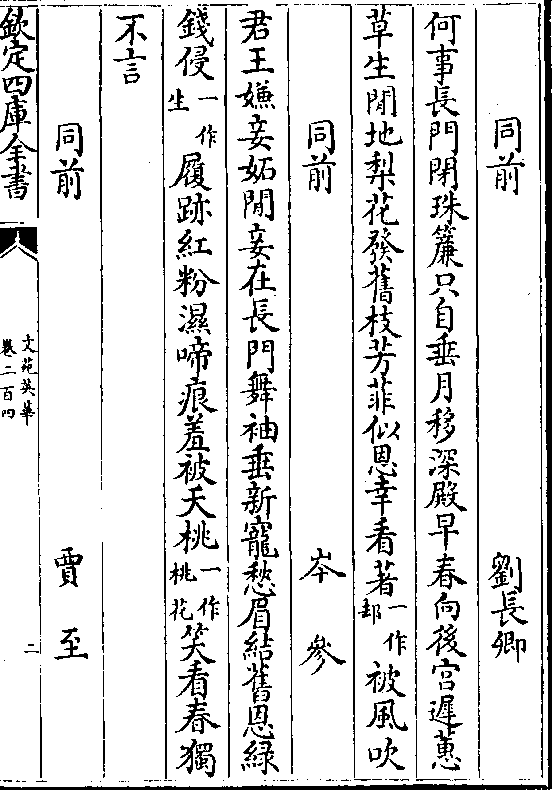 同前 劉長卿
何事長門閉珠簾只自垂月移深殿早春向後宮遲蕙
草生閒地梨花發舊枝芳菲似恩幸看著一作却被風吹
同前 岑參
君王嫌妾妬閒妾在長門舞袖垂新寵愁眉結舊恩綠
錢侵一作生履跡紅粉濕啼痕羞被夭桃一作桃花笑看春獨
不言
同前 賈至
欽定四庫全書 文苑英華 卷二百四 二